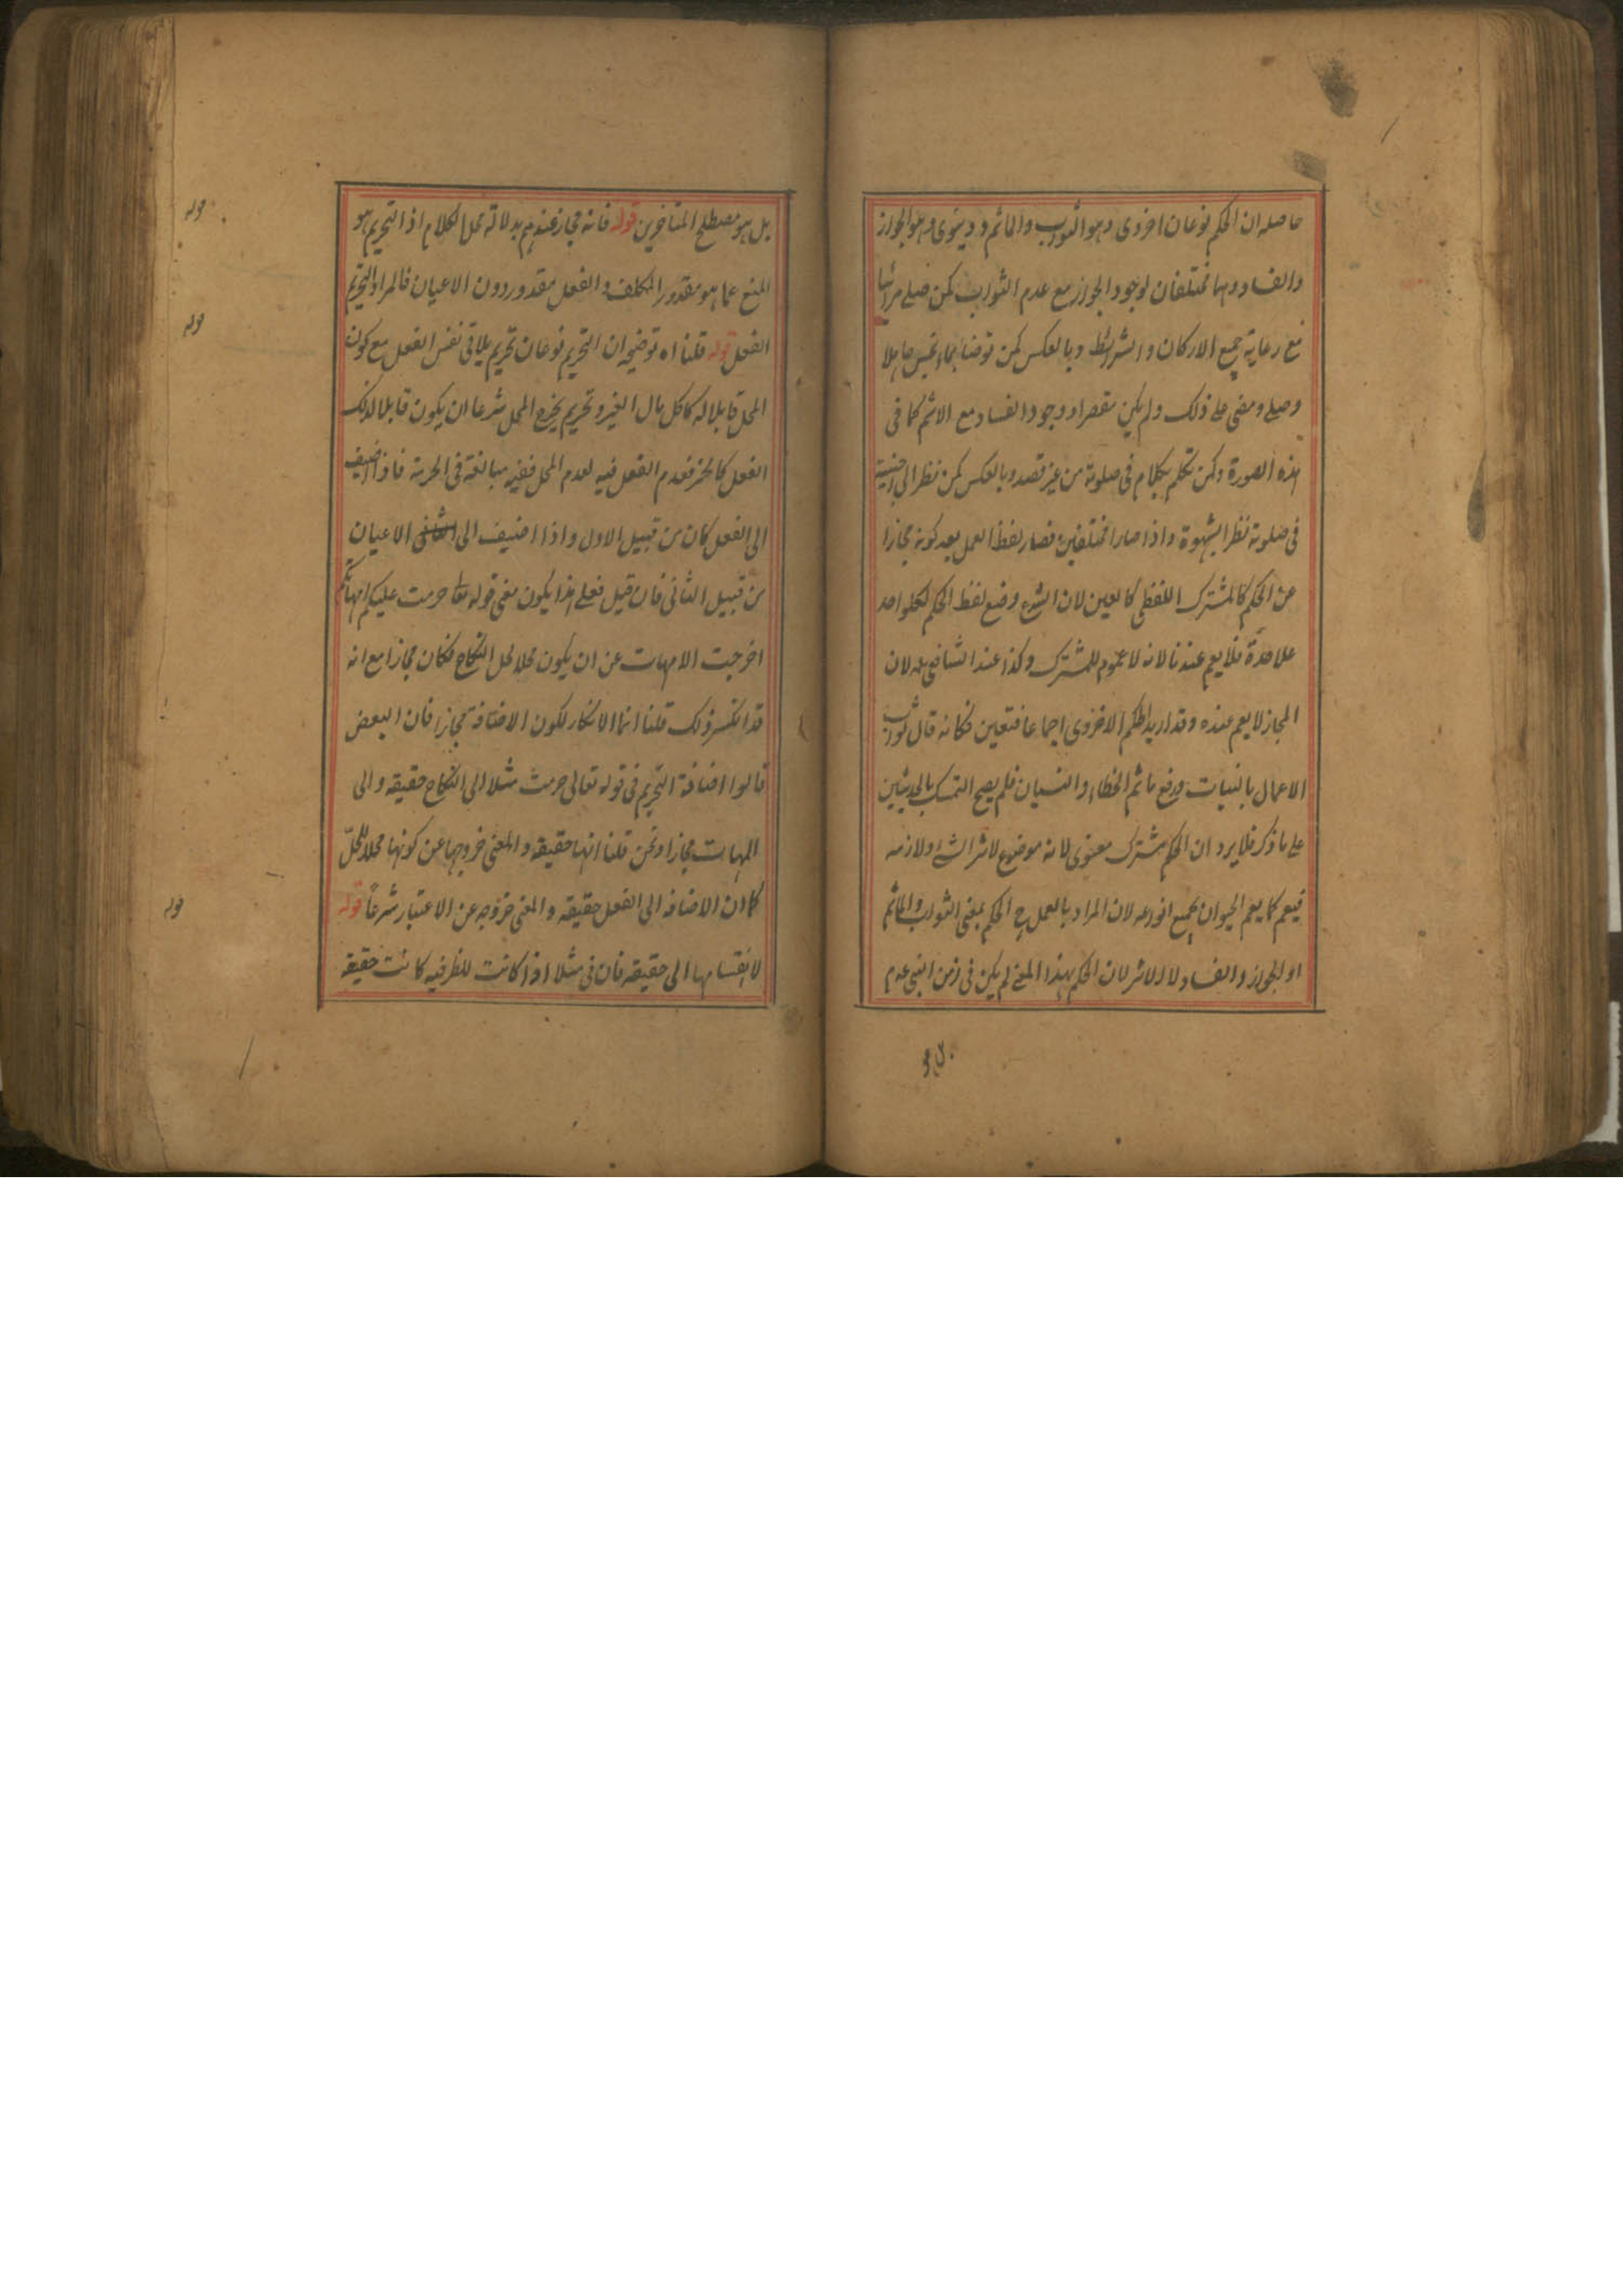 حاصله ان الحكم نوعان اخروى وهو الثواب والماثم ودنيوى وهو الجواز
والفساد وهما مختلفان لوجود الجواز مع عدم الثواب كمن صلى مرائيا
مع رعاية جميع الاركان والشرائط وبالعكس كمن توضأ بماء نجس جاهلا
وصلى ومضى على ذلك ولم يكن مقصرا ووجود الفساد مع الاثم كما فى
هذه الصورة وكمن تكلم بكلام فى صلوته من غير قصد وبالعكس كمن نظر الى اجنبية
فى صلوته نظر الشهوة واذا صارا مختلفين فصار لفظ العمل بعد كونه مجازا
عن الحكم كالمشترك اللفظى كالعين لان الشرع وضع لفظ الحكم لكل واحد
علاحدة فلا يعم عندنا لانه لا عموم للمشترك وكذا عند الشافعى رح لان
المجاز لا يعم عنده وقد اريد الحكم الاخروى اجماعا فتعين فكانه قال ثواب
الاعمال بالنيات ورفع ماثم الخطاء والنسيان فلم يصح التمسك بالحديثين
على ما ذكر فلا يرد ان الحكم مشترك معنوى لانه موضوع لاثر الشئ ولازمه
فيعم كما يعم الحيوان جميع انواعه لان المراد بالعمل ح الحكم بمعنى الثواب والماثم
او الجواز والفساد لا الاثر لان الحكم بهذا المعنى لم يكن فى زمن النبى عدم
بل هو
بل هو مصطلح المتاخرين قوله فانه مجاز عندهم بدلالة محل الكلام اذ التحريم هو
المنع عما هو مقدور المكلف والفعل مقدور دون الاعيان فالمراد التحريم
الفعل قوله قلنا اه توضيحه ان التحريم نوعان تحريم يلاقى نفس الفعل مع كون
المحل قابلا له كاكل مال الغير وتحريم يخرج المحل شرعا ان يكون قابلا لذلك
الفعل كالخمر فعدم الفعل فيه لعدم المحل ففيه مبالغة فى الحرمة فاذا اضيف
الى الفعل كان من قبيل الاول واذا اضيف الى الاعيان
من قبيل الثانى فان قيل فعلى هذا يكون معنى قوله تعا حرمت عليكم امهاتكم
اخرجت الامهات عن ان يكون محلا لحل النكاح فكان مجازا مع انه
قد انكر ذلك قلنا انما الانكار لكون الاضافة مجازا فان البعض
قالوا اضافة التحريم فى قوله تعالى حرمت مثلا الى النكاح حقيقة والى
الامهات مجازا ونحن قلنا انها حقيقة والمعنى خروجها عن كونها محلا للحل
كما ان الاضافة الى الفعل حقيقة والمعنى خروجه عن الاعتبار شرعا قوله
لانقسامها الى حقيقة فان فى مثلا اذا كانت للظرفية كانت حقيقة
قوله
قوله
قوله